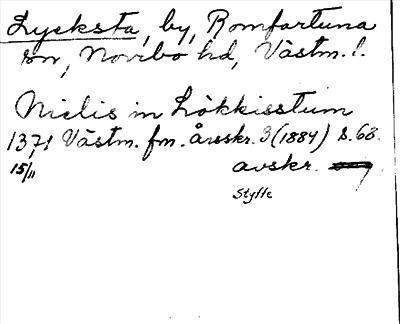 Lycksta, by, Romfartuna
sn, Norrbo hd, Västm. l.
Nielis in Løkkisstum
1371 Västm. fm. årsskr. 3 (1884) s. 68.
15/11 avskr.
Styffe